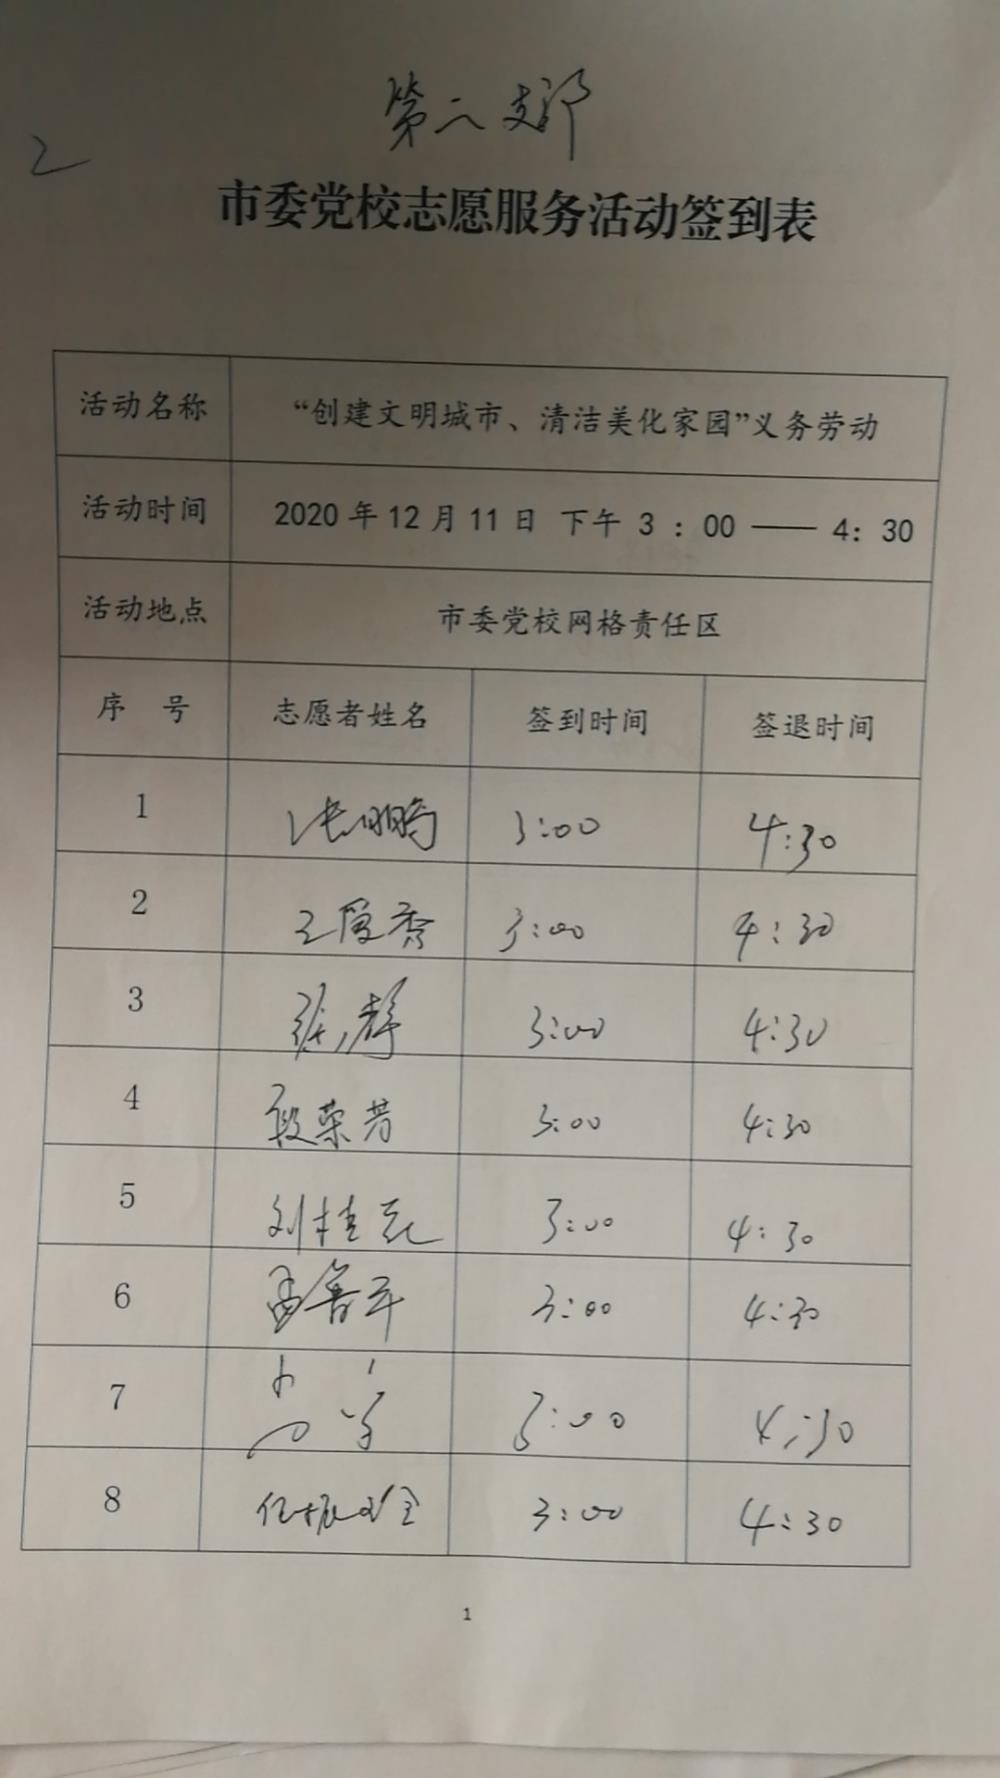 第二支部
2
市委党校志愿服务活动签到表
活动名称 “创建文明城市、清洁美化家园”义务劳动
活动时间 2020年12月11日 下午 3：00 —— 4：30
活动地点 市委党校网格责任区
序 号 志愿者姓名 签到时间 签退时间
1 张鹏 3:00 4:30
2 王爱秀 3:00 4:30
3 张静 3:00 4:30
4 段荣芳 3:00 4:30
5 刘桂花 3:00 4:30
6 3:00 4:30
7 3:00 4:30
8 3:00 4:30
1